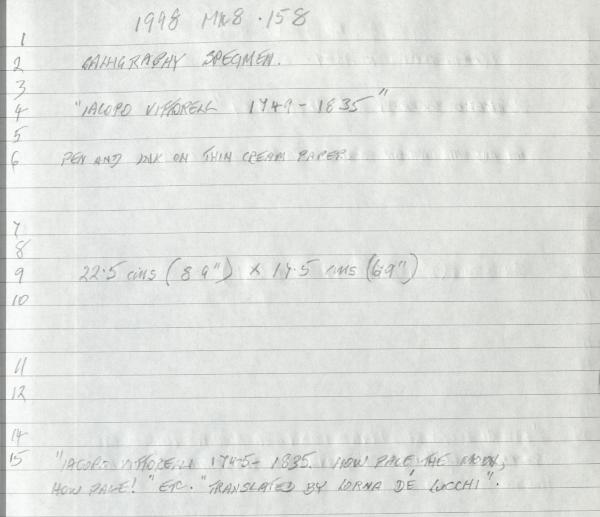 1998 MK8 .158
1
2 CALLIGRAPHY SPECIMEN.
3
4 "IACOPO VITTORELLI 1749 - 1835"
5
6 PEN AND INK ON THIN CREAM PAPER
7
8
9 22.5 cms (8.9") x 17.5 cms (6.9")
10
11
12
14
15 "IACOPO VITTORELLI 1745 - 1835. HOW PALE THE MOON,
HOW PALE!" ETC. "TRANSLATED BY LORNA DÉ LUCCHI".